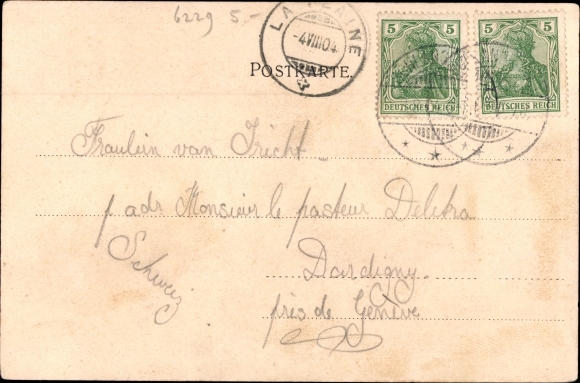 6229 5.-
LA PLAINE
-4 VIII 04.
POSTKARTE.
5 5
DEUTSCHES REICH
5 5
DEUTSCHES REICH
Fräulein van Tricht
p adr Monsieur le pasteur Deletra
Dardigny
près de Genève
Schweiz